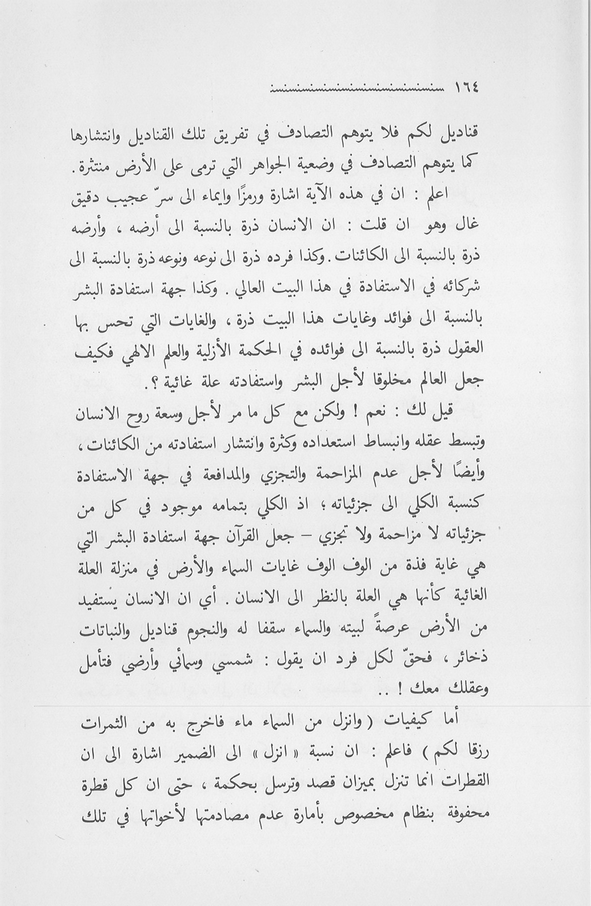 ١٦٤
قناديل لكم فلا يتوهم التصادف في تفريق تلك القناديل وانتشارها
كما يتوهم التصادف في وضعية الجواهر التي ترمى على الأرض منتثرة.
اعلم : ان في هذه الآية اشارة ورمزًا وايماء الى سرّ عجيب دقيق
غال وهو ان قلت : ان الانسان ذرة بالنسبة الى أرضه ، وأرضه
ذرة بالنسبة الى الكائنات. وكذا فرده ذرة الى نوعه ونوعه ذرة بالنسبة الى
شركائه في الاستفادة في هذا البيت العالي . وكذا جهة استفادة البشر
بالنسبة الى فوائد وغايات هذا البيت ذرة ، والغايات التي تحس بها
العقول ذرة بالنسبة الى فوائده في الحكمة الأزلية والعلم الالهي فكيف
جعل العالم مخلوقا لأجل البشر واستفادته علة غائية ؟.
قيل لك : نعم ! ولكن مع كل ما مر لأجل وسعة روح الانسان
وتبسط عقله وانبساط استعداده وكثرة وانتشار استفادته من الكائنات ،
وأيضًا لأجل عدم المزاحمة والتجزي والمدافعة في جهة الاستفادة
كنسبة الكلي الى جزئياته ؛ اذ الكلي بتمامه موجود في كل من
جزئياته لا مزاحمة ولا تجزي – جعل القرآن جهة استفادة البشر التي
هي غاية فذة من الوف الوف غايات السماء والأرض في منزلة العلة
الغائية كأنها هي العلة بالنظر الى الانسان . أي ان الانسان يستفيد
من الأرض عرصةً لبيته والسماء سقفا له والنجوم قناديل والنباتات
ذخائر ، فحقّ لكل فرد ان يقول : شمسي وسمائي وأرضي فتأمل
وعقلك معك ! ..
أما كيفيات ( وانزل من السماء ماء فاخرج به من الثمرات
رزقا لكم ) فاعلم : ان نسبة « انزل » الى الضمير اشارة الى ان
القطرات انما تنزل بميزان قصد وترسل بحكمة ، حتى ان كل قطرة
محفوفة بنظام مخصوص بأمارة عدم مصادمتها لأخواتها في تلك